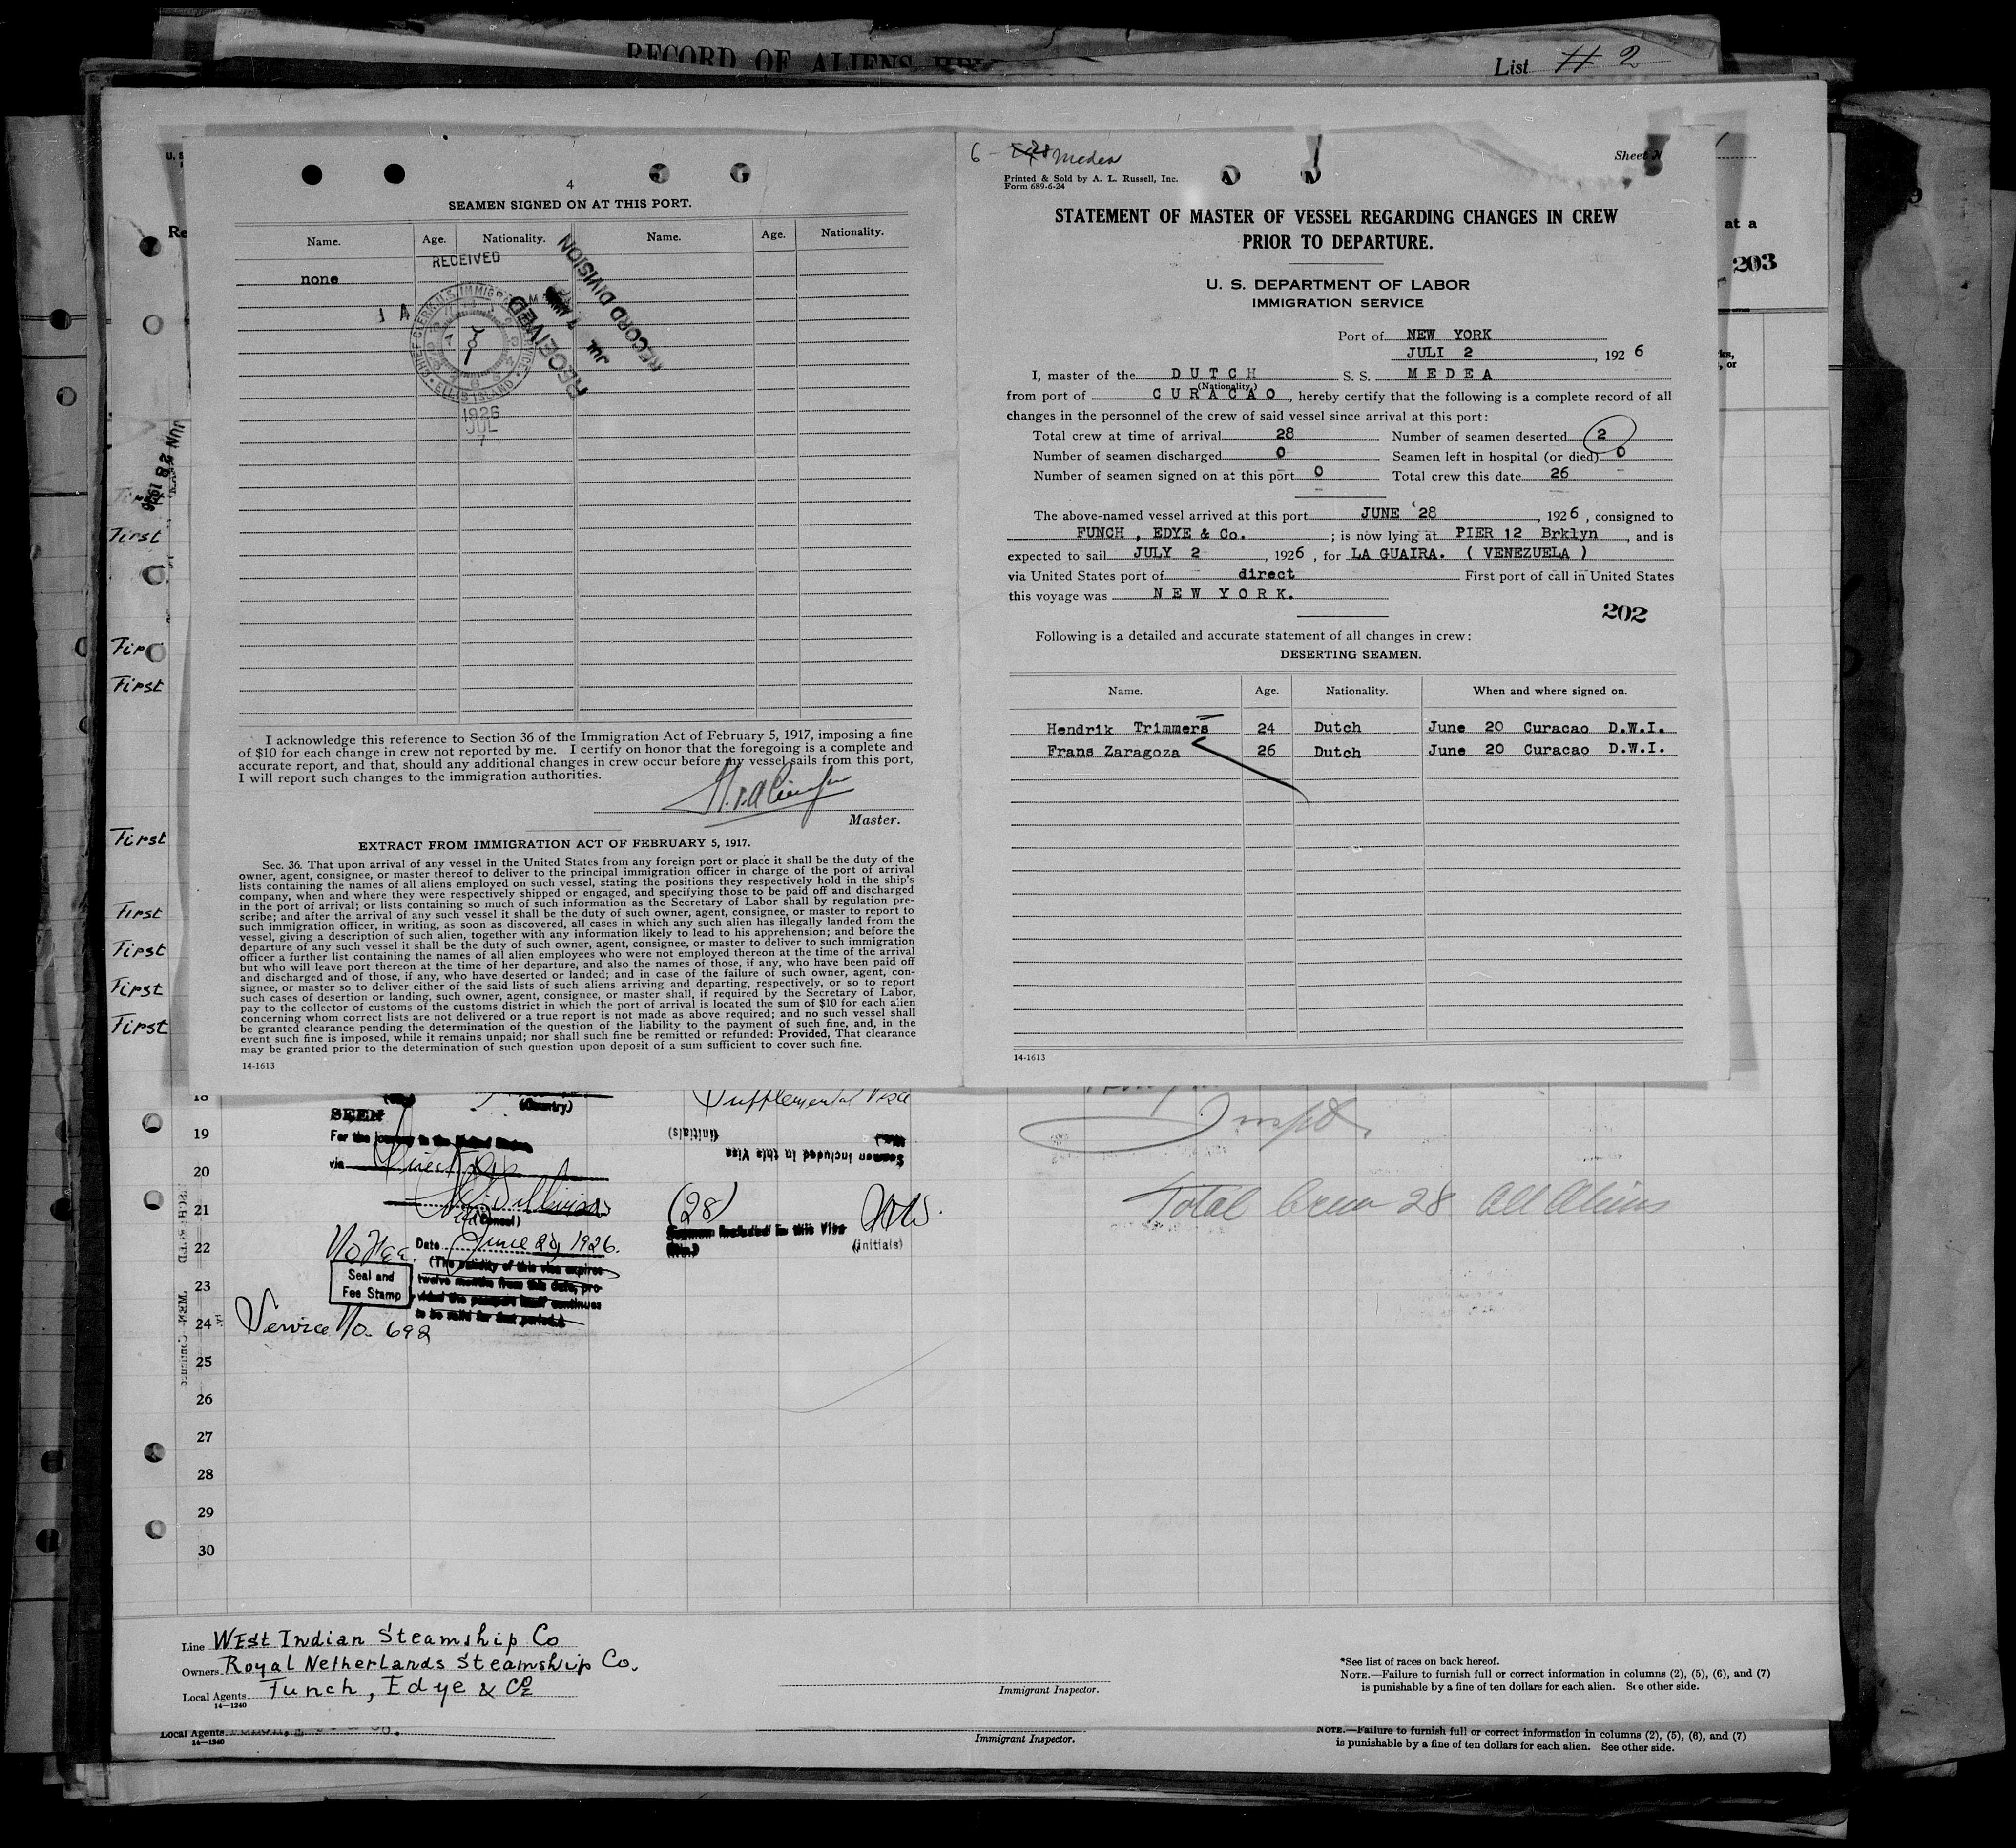 RECORD OF ALIENS
List # 2
4
SEAMEN SIGNED ON AT THIS PORT.
Name. Age. Nationality. Name. Age. Nationality.
none
RECEIVED
CHIEF CLERK U.S. IMMIGRATION SERVICE
ELLIS ISLAND
1926
JUL
7
RECEIVED
JUL 7
RECORD DIVISION
I acknowledge this reference to Section 36 of the Immigration Act of February 5, 1917, imposing a fine
of $10 for each change in crew not reported by me. I certify on honor that the foregoing is a complete and
accurate report, and that, should any additional changes in crew occur before my vessel sails from this port,
I will report such changes to the immigration authorities.
Master.
EXTRACT FROM IMMIGRATION ACT OF FEBRUARY 5, 1917.
Sec. 36. That upon arrival of any vessel in the United States from any foreign port or place it shall be the duty of the
owner, agent, consignee, or master thereof to deliver to the principal immigration officer in charge of the port of arrival
lists containing the names of all aliens employed on such vessel, stating the positions they respectively hold in the ship's
company, when and where they were respectively shipped or engaged, and specifying those to be paid off and discharged
in the port of arrival; or lists containing so much of such information as the Secretary of Labor shall by regulation pre-
scribe; and after the arrival of any such vessel it shall be the duty of such owner, agent, consignee, or master to report to
such immigration officer, in writing, as soon as discovered, all cases in which any such alien has illegally landed from the
vessel, giving a description of such alien, together with any information likely to lead to his apprehension; and before the
departure of any such vessel it shall be the duty of such owner, agent, consignee, or master to deliver to such immigration
officer a further list containing the names of all alien employees who were not employed thereon at the time of the arrival
but who will leave port thereon at the time of her departure, and also the names of those, if any, who have been paid off
and discharged and of those, if any, who have deserted or landed; and in case of the failure of such owner, agent, con-
signee, or master so to deliver either of the said lists of such aliens arriving and departing, respectively, or so to report
such cases of desertion or landing, such owner, agent, consignee, or master shall, if required by the Secretary of Labor,
pay to the collector of customs of the customs district in which the port of arrival is located the sum of $10 for each alien
concerning whom correct lists are not delivered or a true report is not made as above required; and no such vessel shall
be granted clearance pending the determination of the question of the liability to the payment of such fine, and, in the
event such fine is imposed, while it remains unpaid; nor shall such fine be remitted or refunded: Provided, That clearance
may be granted prior to the determination of such question upon deposit of a sum sufficient to cover such fine.
14-1613
6 - 28 Medea
Sheet N
Printed & Sold by A. L. Russell, Inc.
Form 689-6-24
STATEMENT OF MASTER OF VESSEL REGARDING CHANGES IN CREW
PRIOR TO DEPARTURE.
U. S. DEPARTMENT OF LABOR
IMMIGRATION SERVICE
Port of NEW YORK
JULI 2, 1926
I, master of the DUTCH S. S. MEDEA
(Nationality)
from port of CURACAO, hereby certify that the following is a complete record of all
changes in the personnel of the crew of said vessel since arrival at this port:
Total crew at time of arrival 28 Number of seamen deserted 2
Number of seamen discharged 0 Seamen left in hospital (or died) 0
Number of seamen signed on at this port 0 Total crew this date 26
The above-named vessel arrived at this port JUNE '28, 1926, consigned to
FUNCH , EDYE & Co. ; is now lying at PIER 12 Brklyn, and is
expected to sail JULY 2, 1926, for LA GUAIRA. ( VENEZUELA )
via United States port of direct First port of call in United States
this voyage was NEW YORK.
202
Following is a detailed and accurate statement of all changes in crew:
DESERTING SEAMEN.
Name. Age. Nationality. When and where signed on.
Hendrik Trimmers 24 Dutch June 20 Curacao D.W.I.
Frans Zaragoza 26 Dutch June 20 Curacao D.W.I.
14-1613
at a
203
JUN 28 1926
First
First
First
First
First
First
First
First
18
19
20
21
22
23
24
25
26
27
28
29
30
(Country)
SEEN
For the journey to the United States
via
(Consul)
Date June 20, 1926.
(The validity of this visa expires
twelve months from this date, pro-
vided the passport itself continues
to be valid for that period.)
No Fee
Seal and
Fee Stamp
Service No. 692
Supplemental Visa
(initials)
Seamen included in this Visa
(No.)
(28)
Seamen included in this Visa
(No.)
(initials)
Total Crew 28 All Aliens
Line West Indian Steamship Co
Owners Royal Netherlands Steamship Co.
Local Agents Funch, Edye & Co
14-1240
Immigrant Inspector.
*See list of races on back hereof.
NOTE.—Failure to furnish full or correct information in columns (2), (5), (6), and (7)
is punishable by a fine of ten dollars for each alien. See other side.
Local Agents
14-1240
Immigrant Inspector.
NOTE.—Failure to furnish full or correct information in columns (2), (5), (6), and (7)
is punishable by a fine of ten dollars for each alien. See other side.